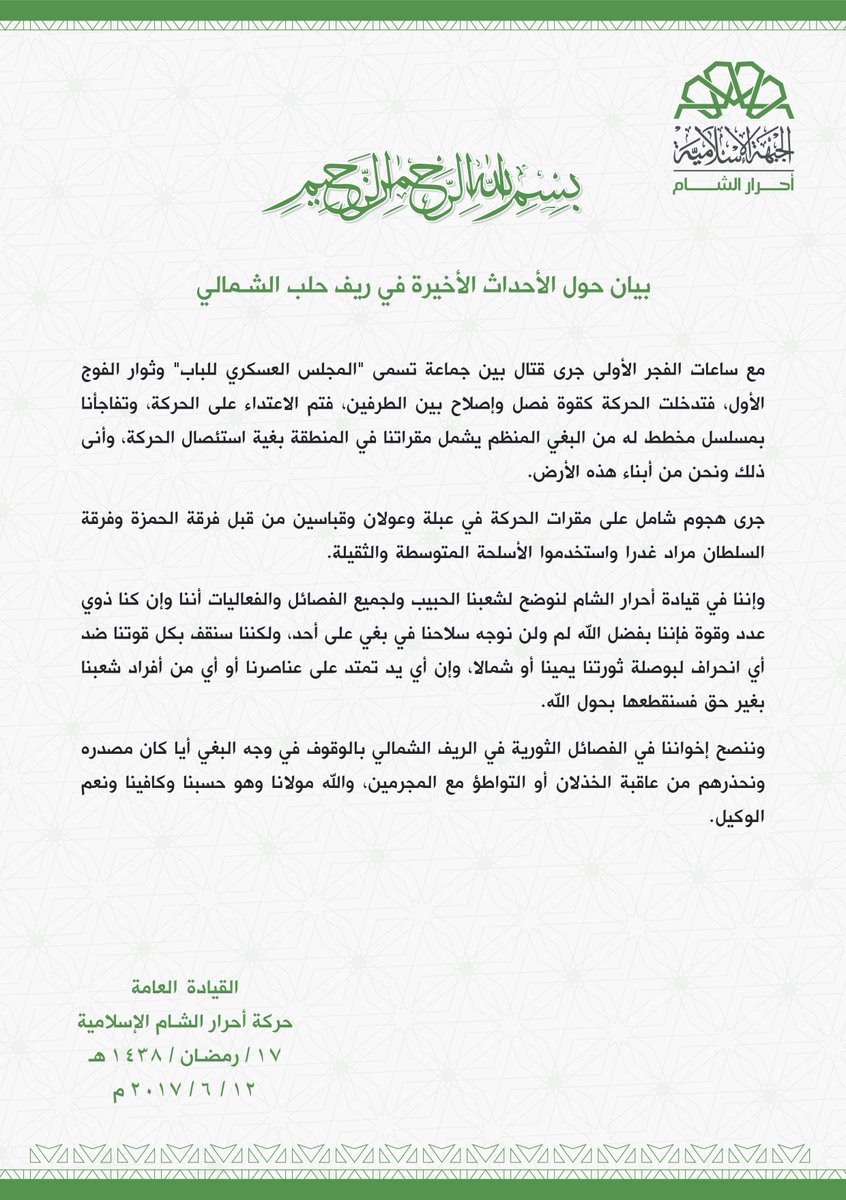 الجبهة الإسلامية
أحرار الشام
بسم الله الرحمن الرحيم
بيان حول الأحداث الأخيرة في ريف حلب الشمالي
مع ساعات الفجر الأولى جرى قتال بين جماعة تسمى "المجلس العسكري للباب" وثوار الفوج
الأول، فتدخلت الحركة كقوة فصل وإصلاح بين الطرفين، فتم الاعتداء على الحركة، وتفاجأنا
بمسلسل مخطط له من البغي المنظم يشمل مقراتنا في المنطقة بغية استئصال الحركة، وأنى
ذلك ونحن من أبناء هذه الأرض.
جرى هجوم شامل على مقرات الحركة في عبلة وعولان وقباسين من قبل فرقة الحمزة وفرقة
السلطان مراد غدرا واستخدموا الأسلحة المتوسطة والثقيلة.
وإننا في قيادة أحرار الشام لنوضح لشعبنا الحبيب ولجميع الفصائل والفعاليات أننا وإن كنا ذوي
عدد وقوة فإننا بفضل الله لم ولن نوجه سلاحنا في بغي على أحد، ولكننا سنقف بكل قوتنا ضد
أي انحراف لبوصلة ثورتنا يمينا أو شمالا، وإن أي يد تمتد على عناصرنا أو أي من أفراد شعبنا
بغير حق فسنقطعها بحول الله.
وننصح إخواننا في الفصائل الثورية في الريف الشمالي بالوقوف في وجه البغي أيا كان مصدره
ونحذرهم من عاقبة الخذلان أو التواطؤ مع المجرمين، والله مولانا وهو حسبنا وكافينا ونعم
الوكيل.
القيادة العامة
حركة أحرار الشام الإسلامية
١٧ / رمضان / ١٤٣٨ هـ
١٢ / ٦ / ٢٠١٧ م